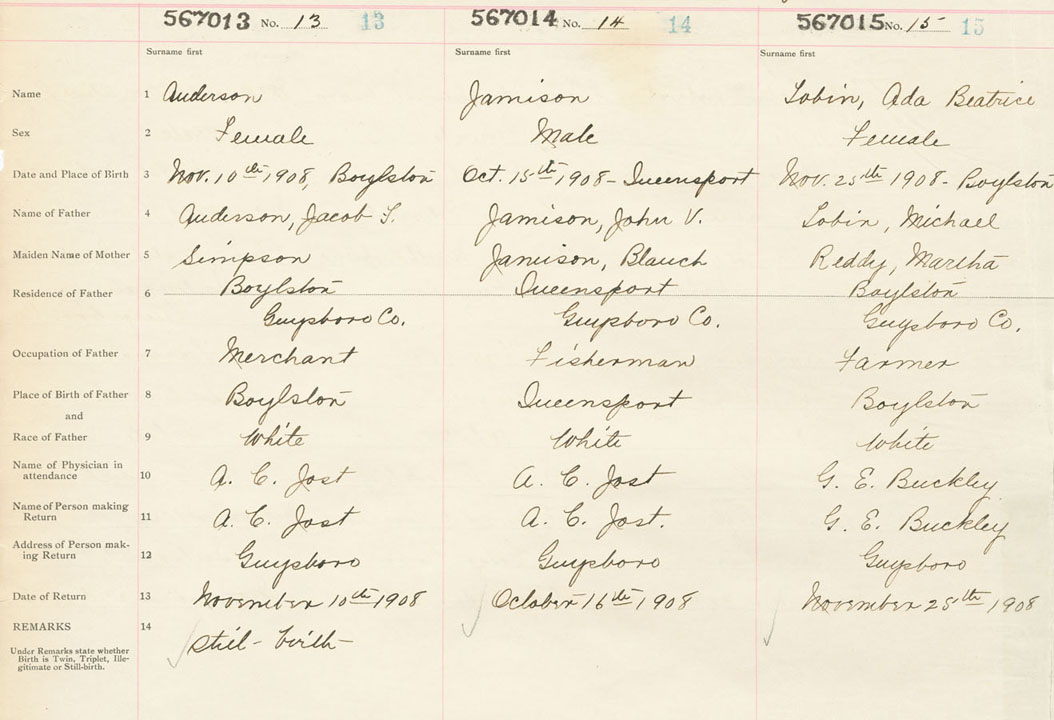 567013 No. 13 13 567014 No. 14 14 567015 No. 15 15
Surname first Surname first Surname first
Name 1 Anderson Jamison Tobin, Ada Beatrice
Sex 2 Female Male Female
Date and Place of Birth 3 Nov. 10th 1908, Boylston Oct. 15th 1908 - Queensport Nov. 25th 1908 - Boylston
Name of Father 4 Anderson, Jacob S. Jamison, John V. Tobin, Michael
Maiden Name of Mother 5 Simpson Jamison, Blanch Reddy, Martha
Residence of Father 6 Boylston Queensport Boylston
Guysboro Co. Guysboro Co. Guysboro Co.
Occupation of Father 7 Merchant Fisherman Farmer
Place of Birth of Father 8 Boylston Queensport Boylston
and
Race of Father 9 White White White
Name of Physician in
attendance 10 A. C. Jost A. C. Jost G. E. Buckley
Name of Person making
Return 11 A. C. Jost A. C. Jost. G. E. Buckley
Address of Person mak-
ing Return 12 Guysboro Guysboro Guysboro
Date of Return 13 November 10th 1908 October 16th 1908 November 25th 1908
REMARKS 14
Still-birth
Under Remarks state whether
Birth is Twin, Triplet, Ille-
gitimate or Still-birth.